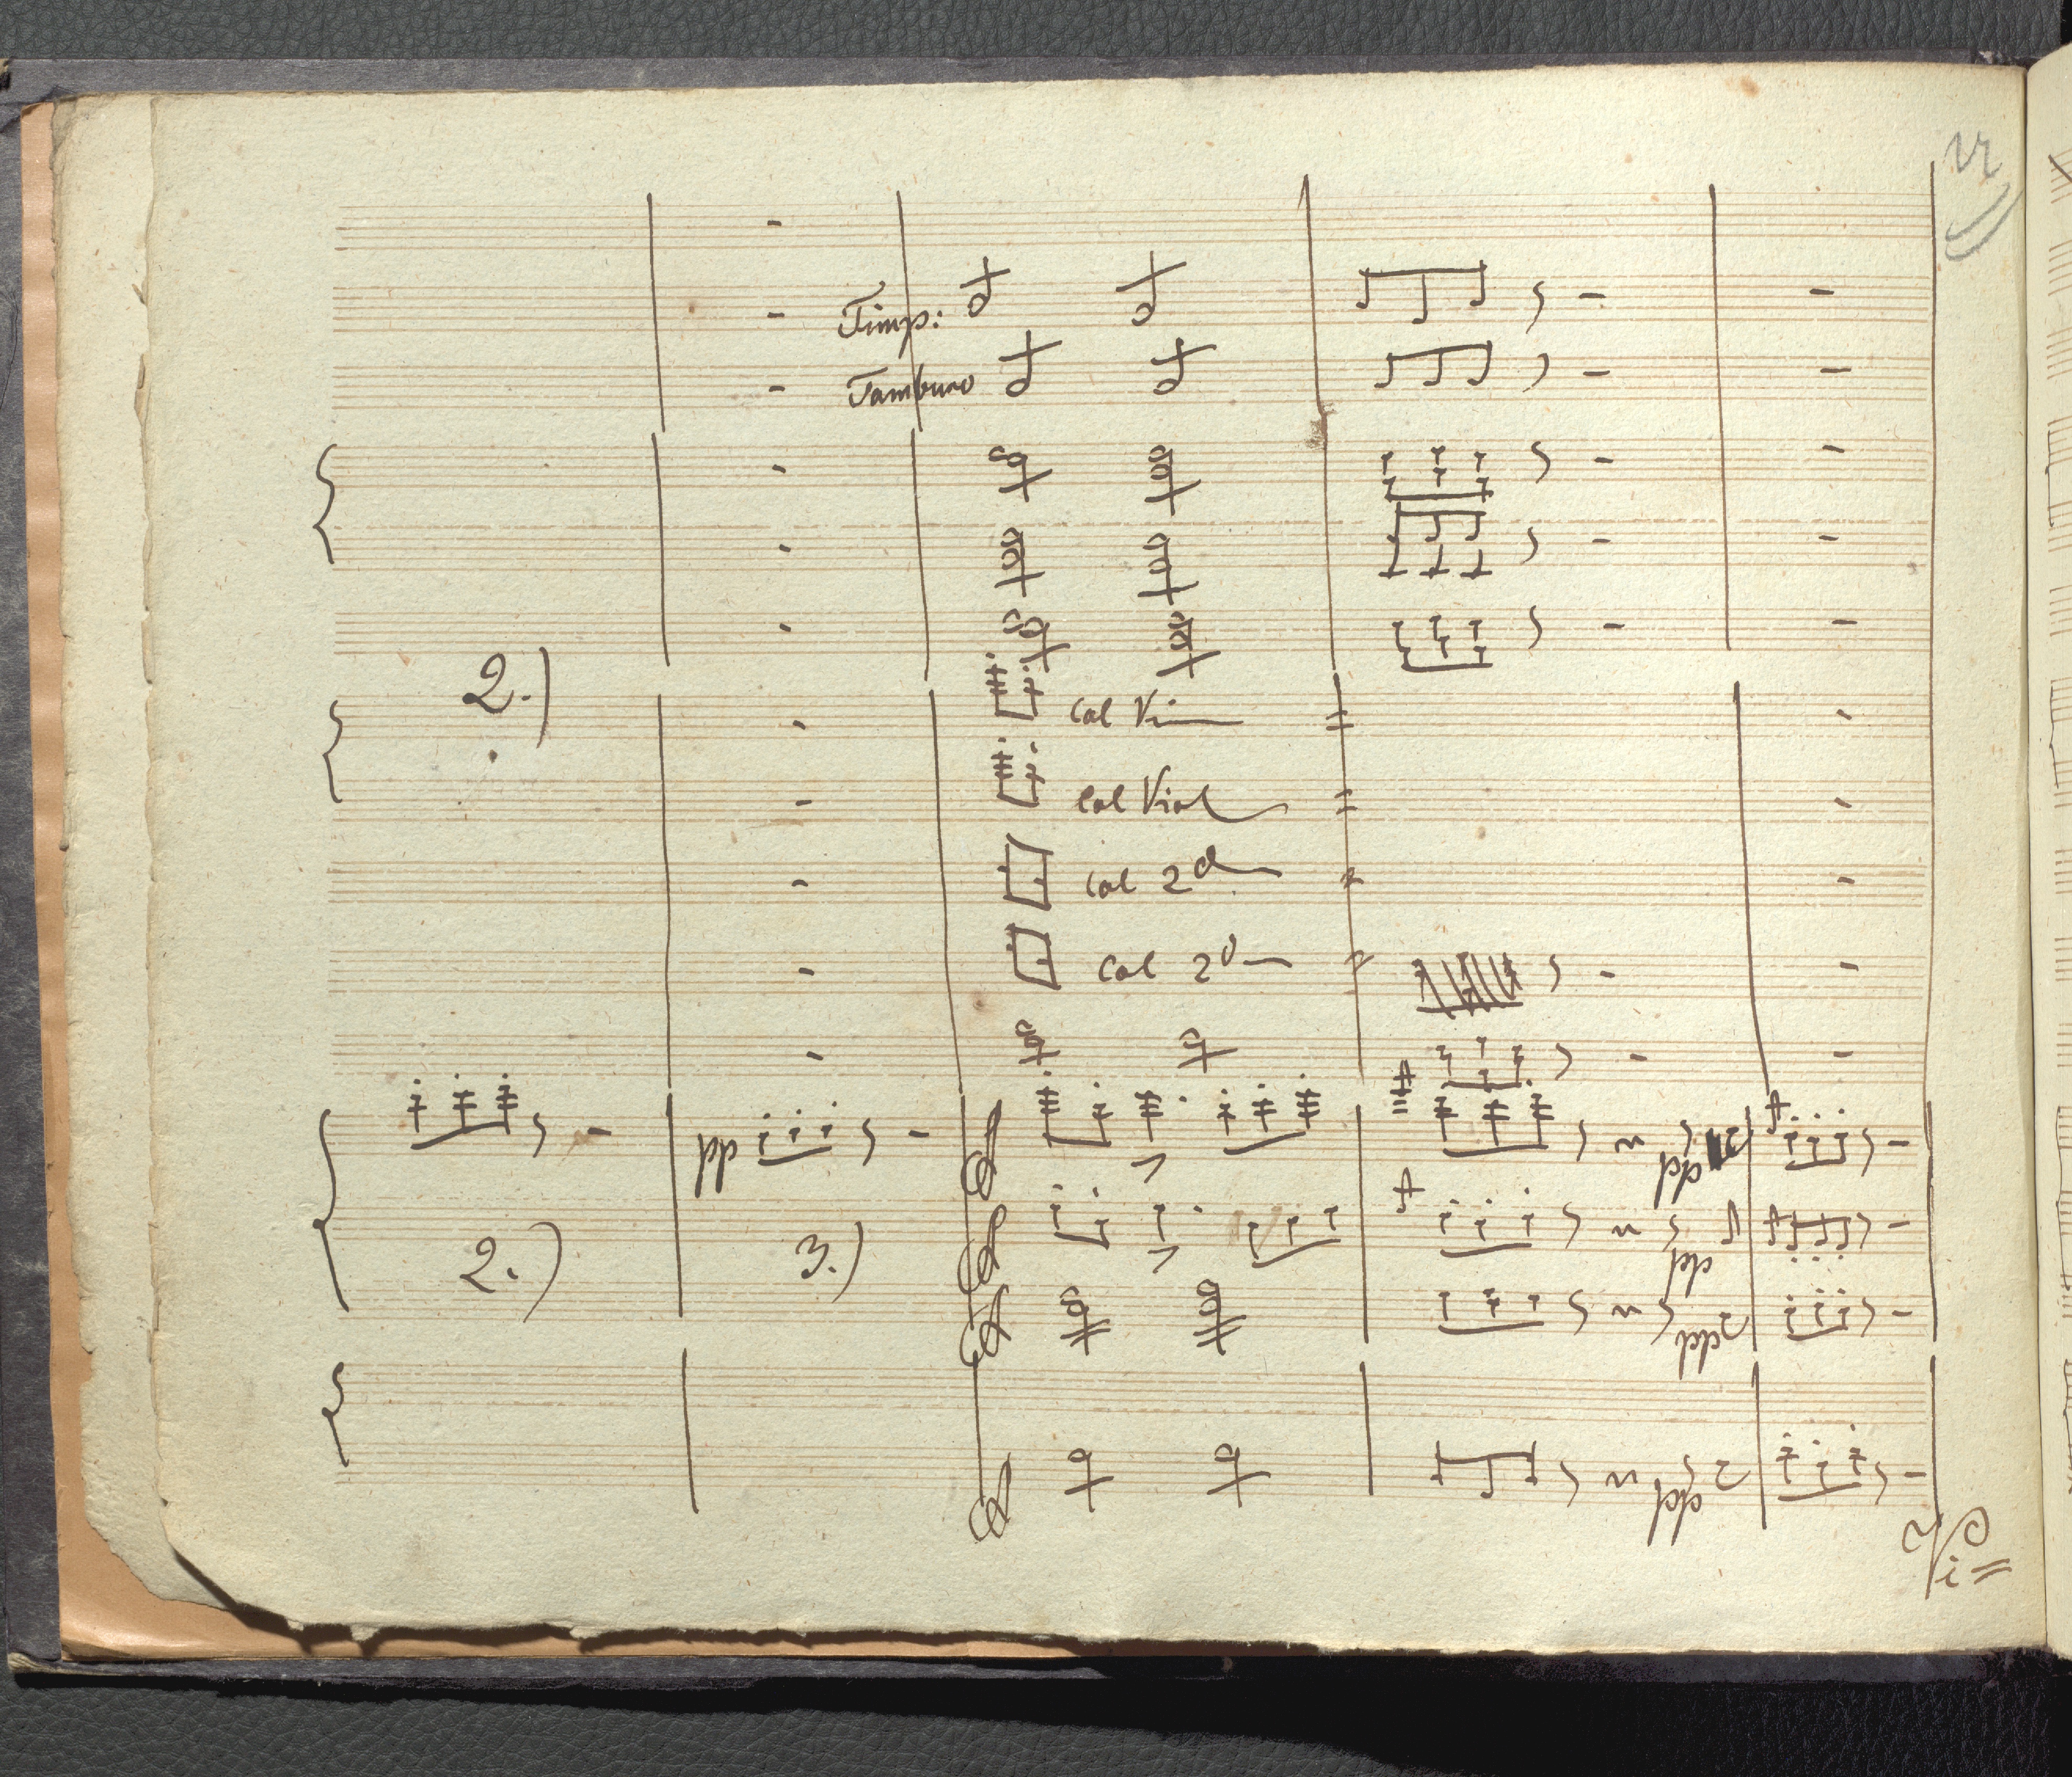 Timp:
Tamburo
2.)
Col Vi
Col Viol
Col 2d
Col 2d
pp
pp
2.)
3.)
pp
pp
pp
Vi=